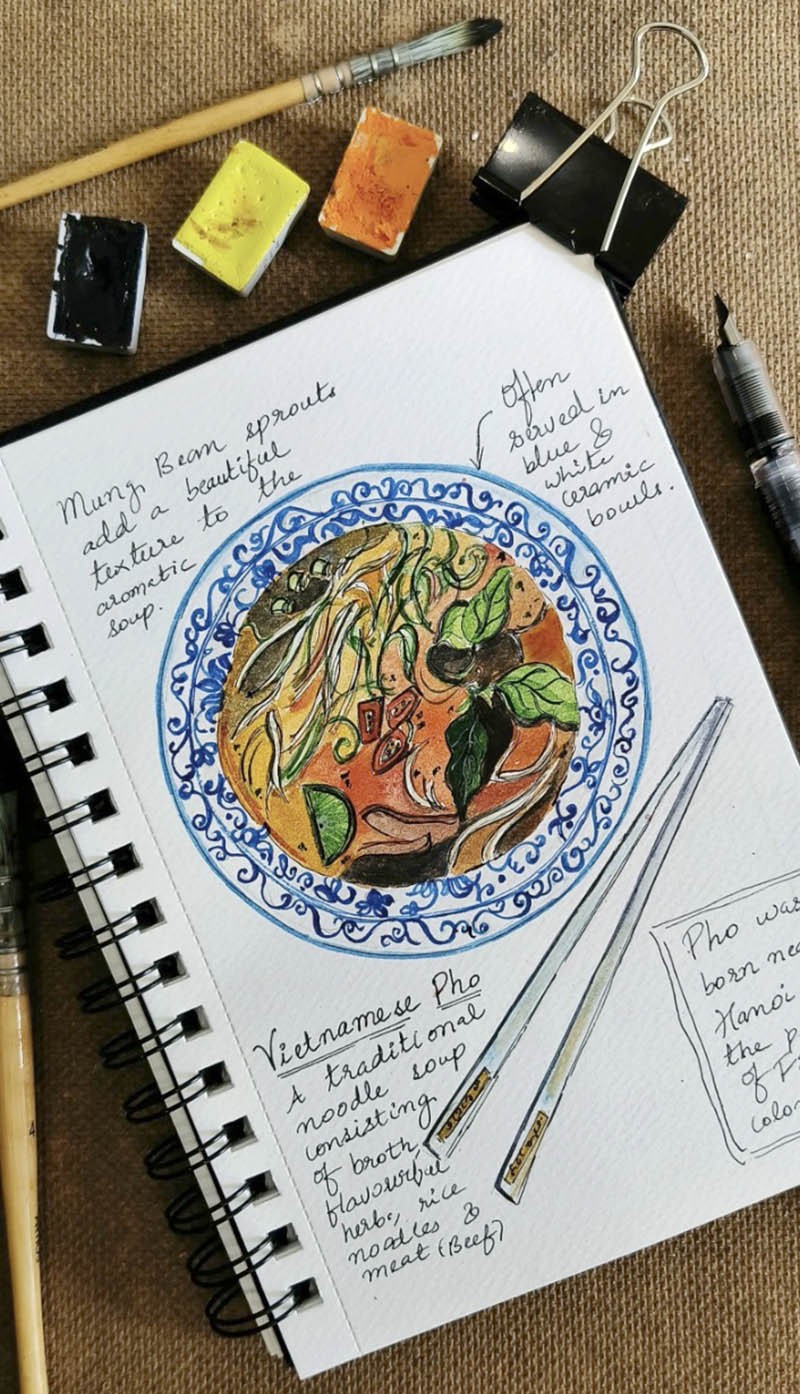 Mung Bean sprouts
add a beautiful
texture to the
aromatic
soup.
Often
served in
blue &
white
ceramic
bowls.
Vietnamese Pho
A traditional
noodle soup
consisting
of broth,
flavourful
herbs, rice
noodles &
meat (Beef)
Pho was
born
Hanoi
the
of
4